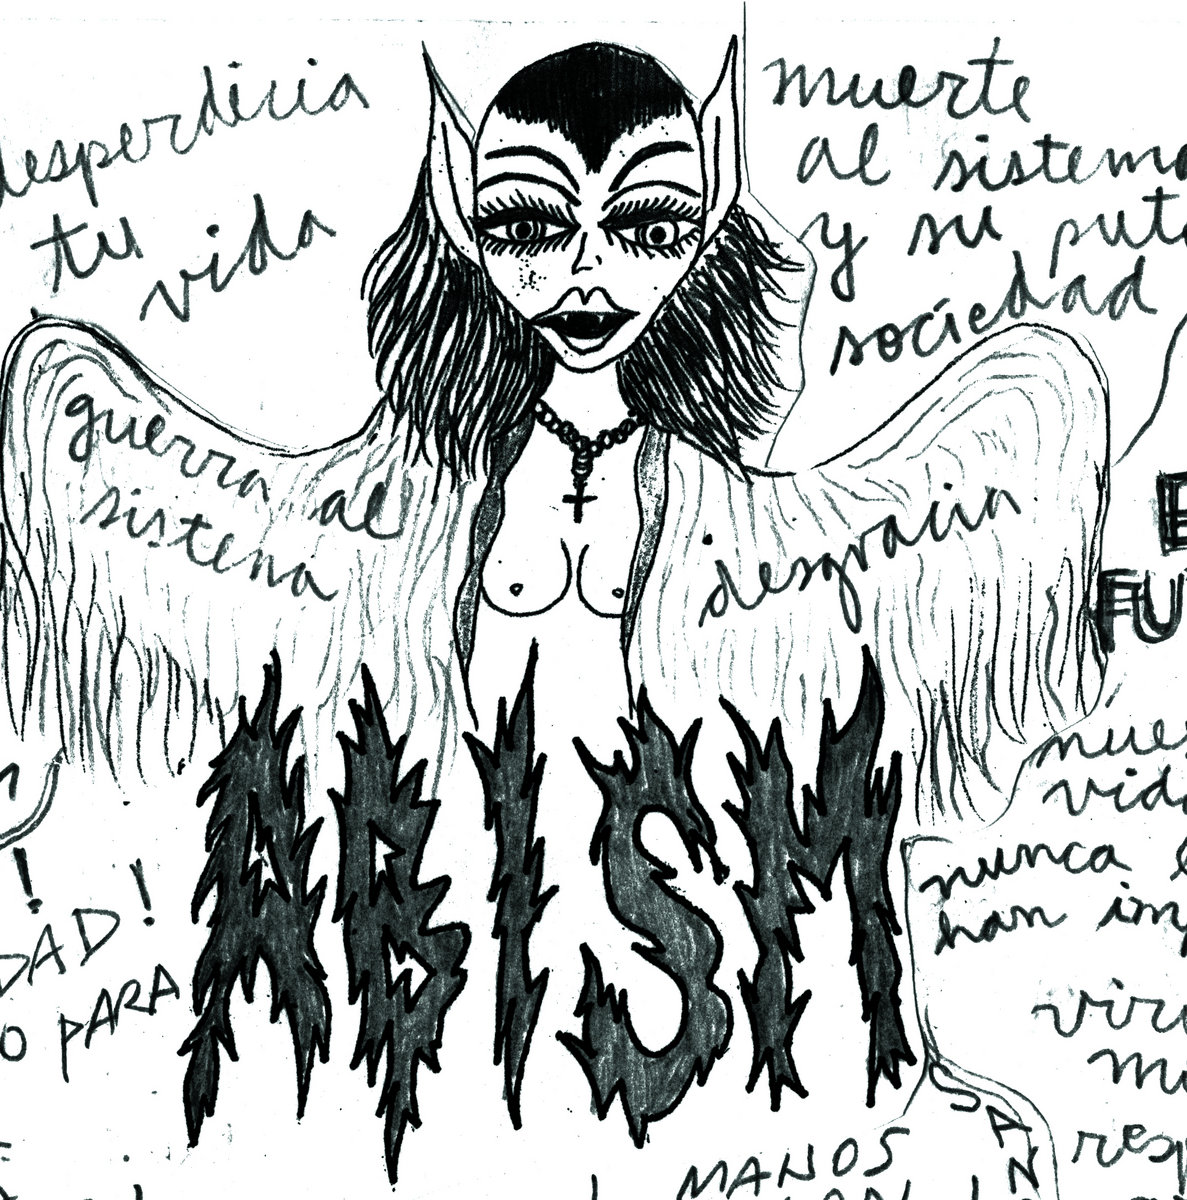 desperdicia
tu
vida
muerte
al sistema
y su puta
sociedad
guerra al
sistema
desgracia
FU
ABISM
!
DAD!
O PARA
nues
vida
nunca e
han imp
viv
m
resp
SAN
MANOS